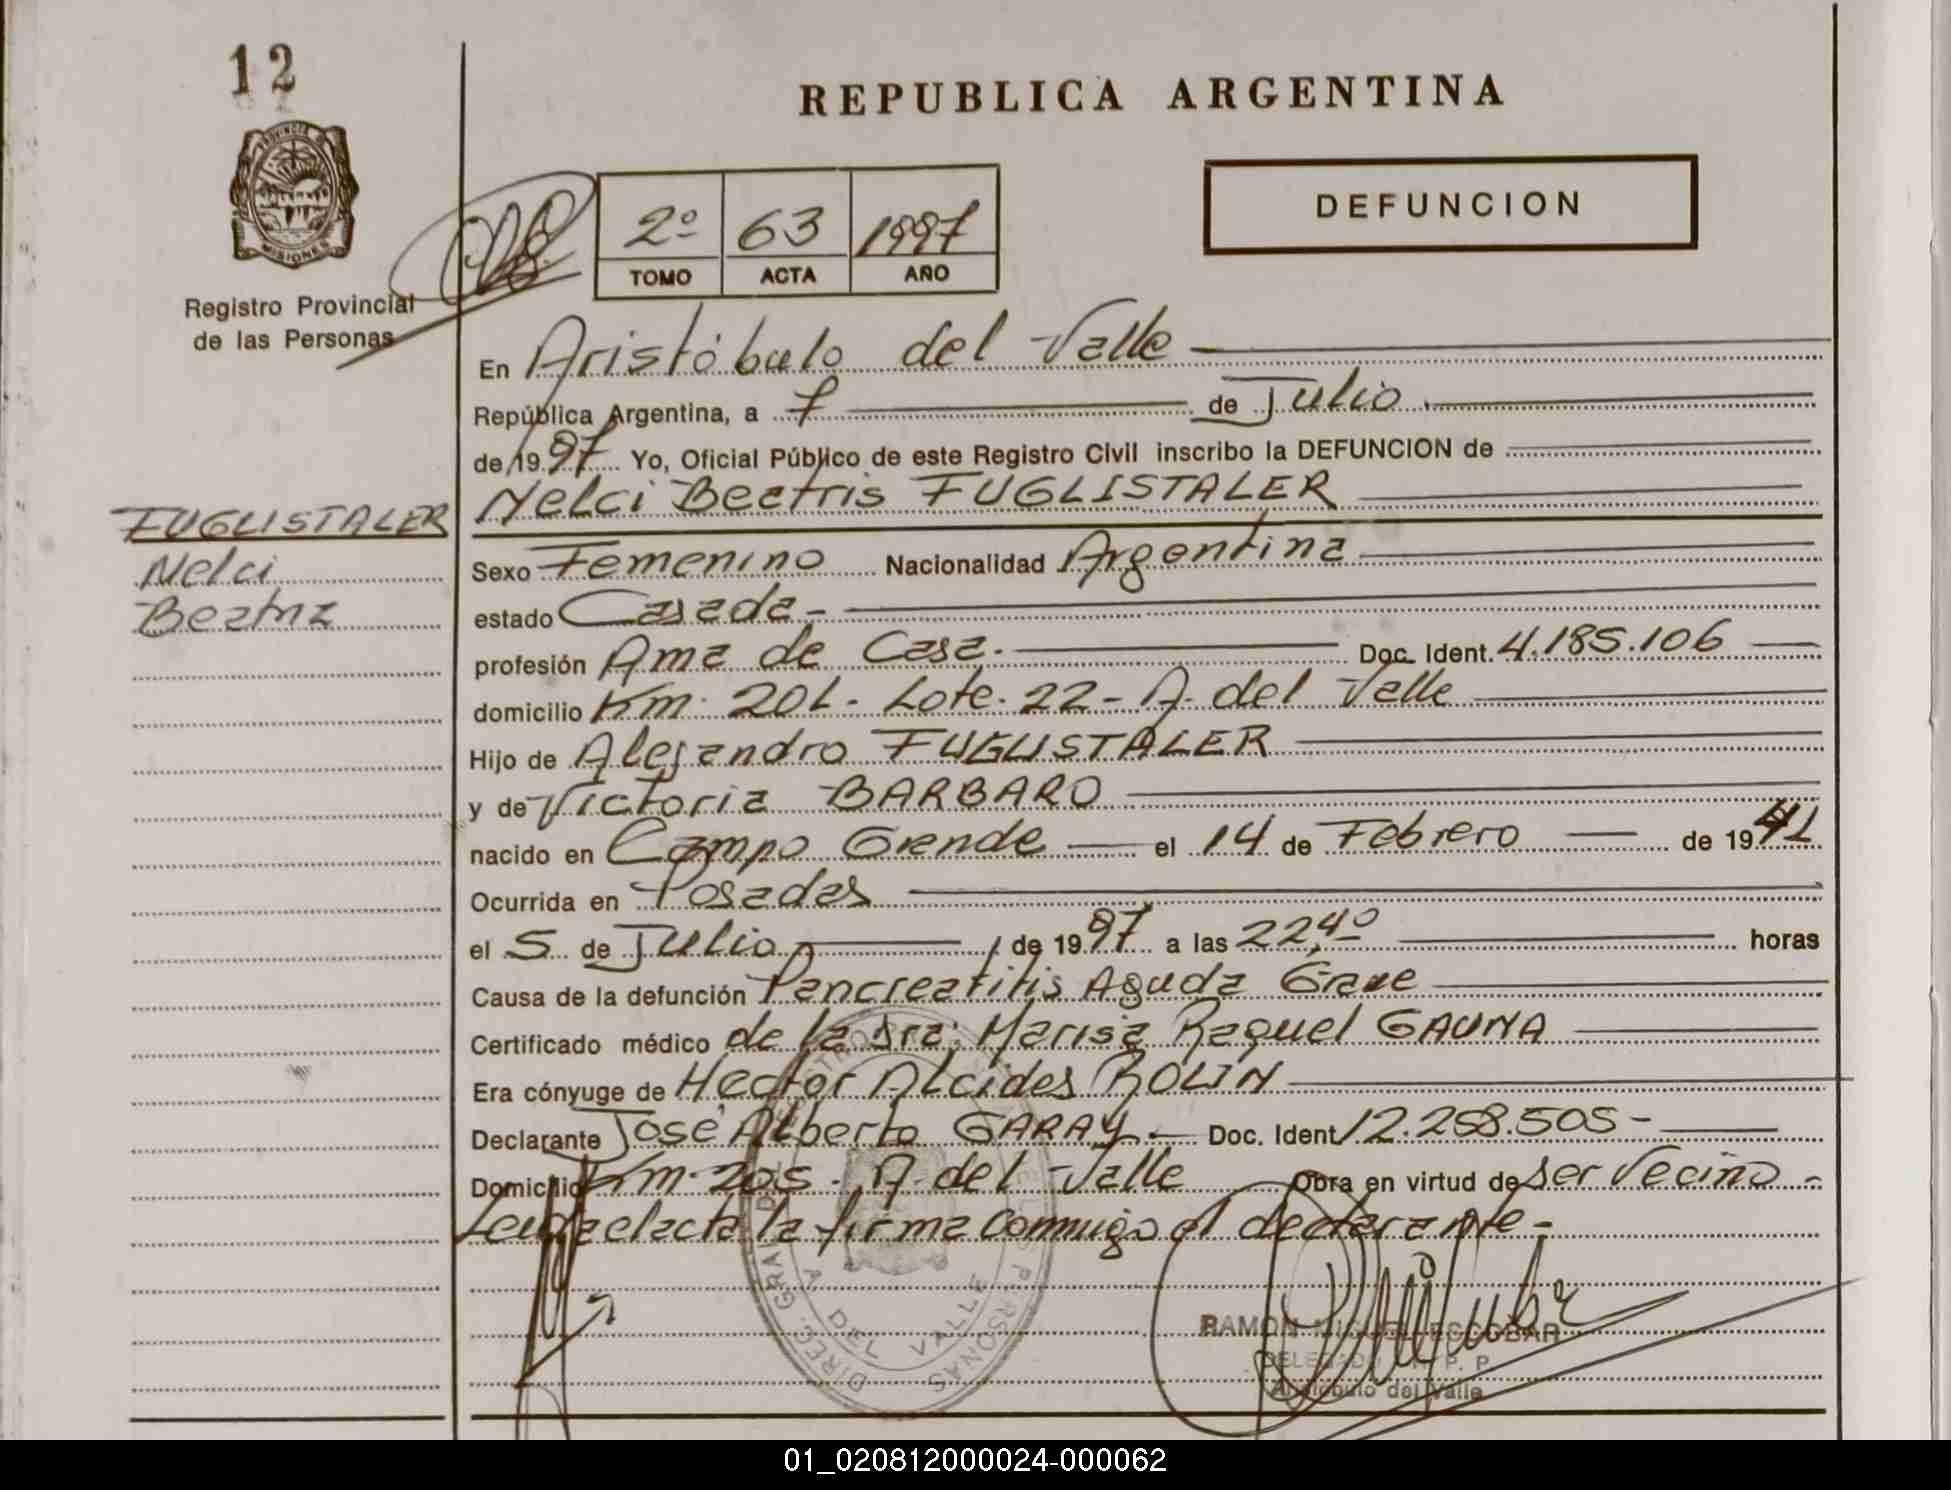 12
PROVINCIA DE
MISIONES
Registro Provincial
de las Personas
REPUBLICA ARGENTINA
DEFUNCION
2º 63 1997
TOMO ACTA AÑO
En Aristóbulo del Valle
República Argentina, a 7 de Julio
de 1997 Yo, Oficial Público de este Registro Civil inscribo la DEFUNCION de
Nelci Beatris FUGLISTALER
FUGLISTALER
Nelci
Beatriz
Sexo Femenino Nacionalidad Argentina
estado Casada.-
profesión Ama de Casa. Doc. Ident. 4.185.106
domicilio Km. 201- Lote. 22- A. del Valle
Hijo de Alejandro FUGLISTALER
y de Victoria BARBARO
nacido en Campo Grande el 14 de Febrero de 1941
Ocurrida en Posadas
el 5 de Julio de 1997 a las 22,40 horas
Causa de la defunción Pancreatitis Aguda Grave
Certificado médico de la Dra. Marisa Raquel GAUNA
Era cónyuge de Hector Alcides ROLIN
Declarante José Alberto GARAY.- Doc. Ident. 12.258.505-
Domicilio Km. 205. A. del Valle Obra en virtud de ser Vecino-
Leída el acta la firma conmigo el declarante-
DIREC. GRAL. DEL REGISTRO DE LAS PERSONAS
A. DEL VALLE
RAMON MIGUEL ESCOBAR
DELEGADO R. P. P.
Aristóbulo del Valle
01_020812000024-000062